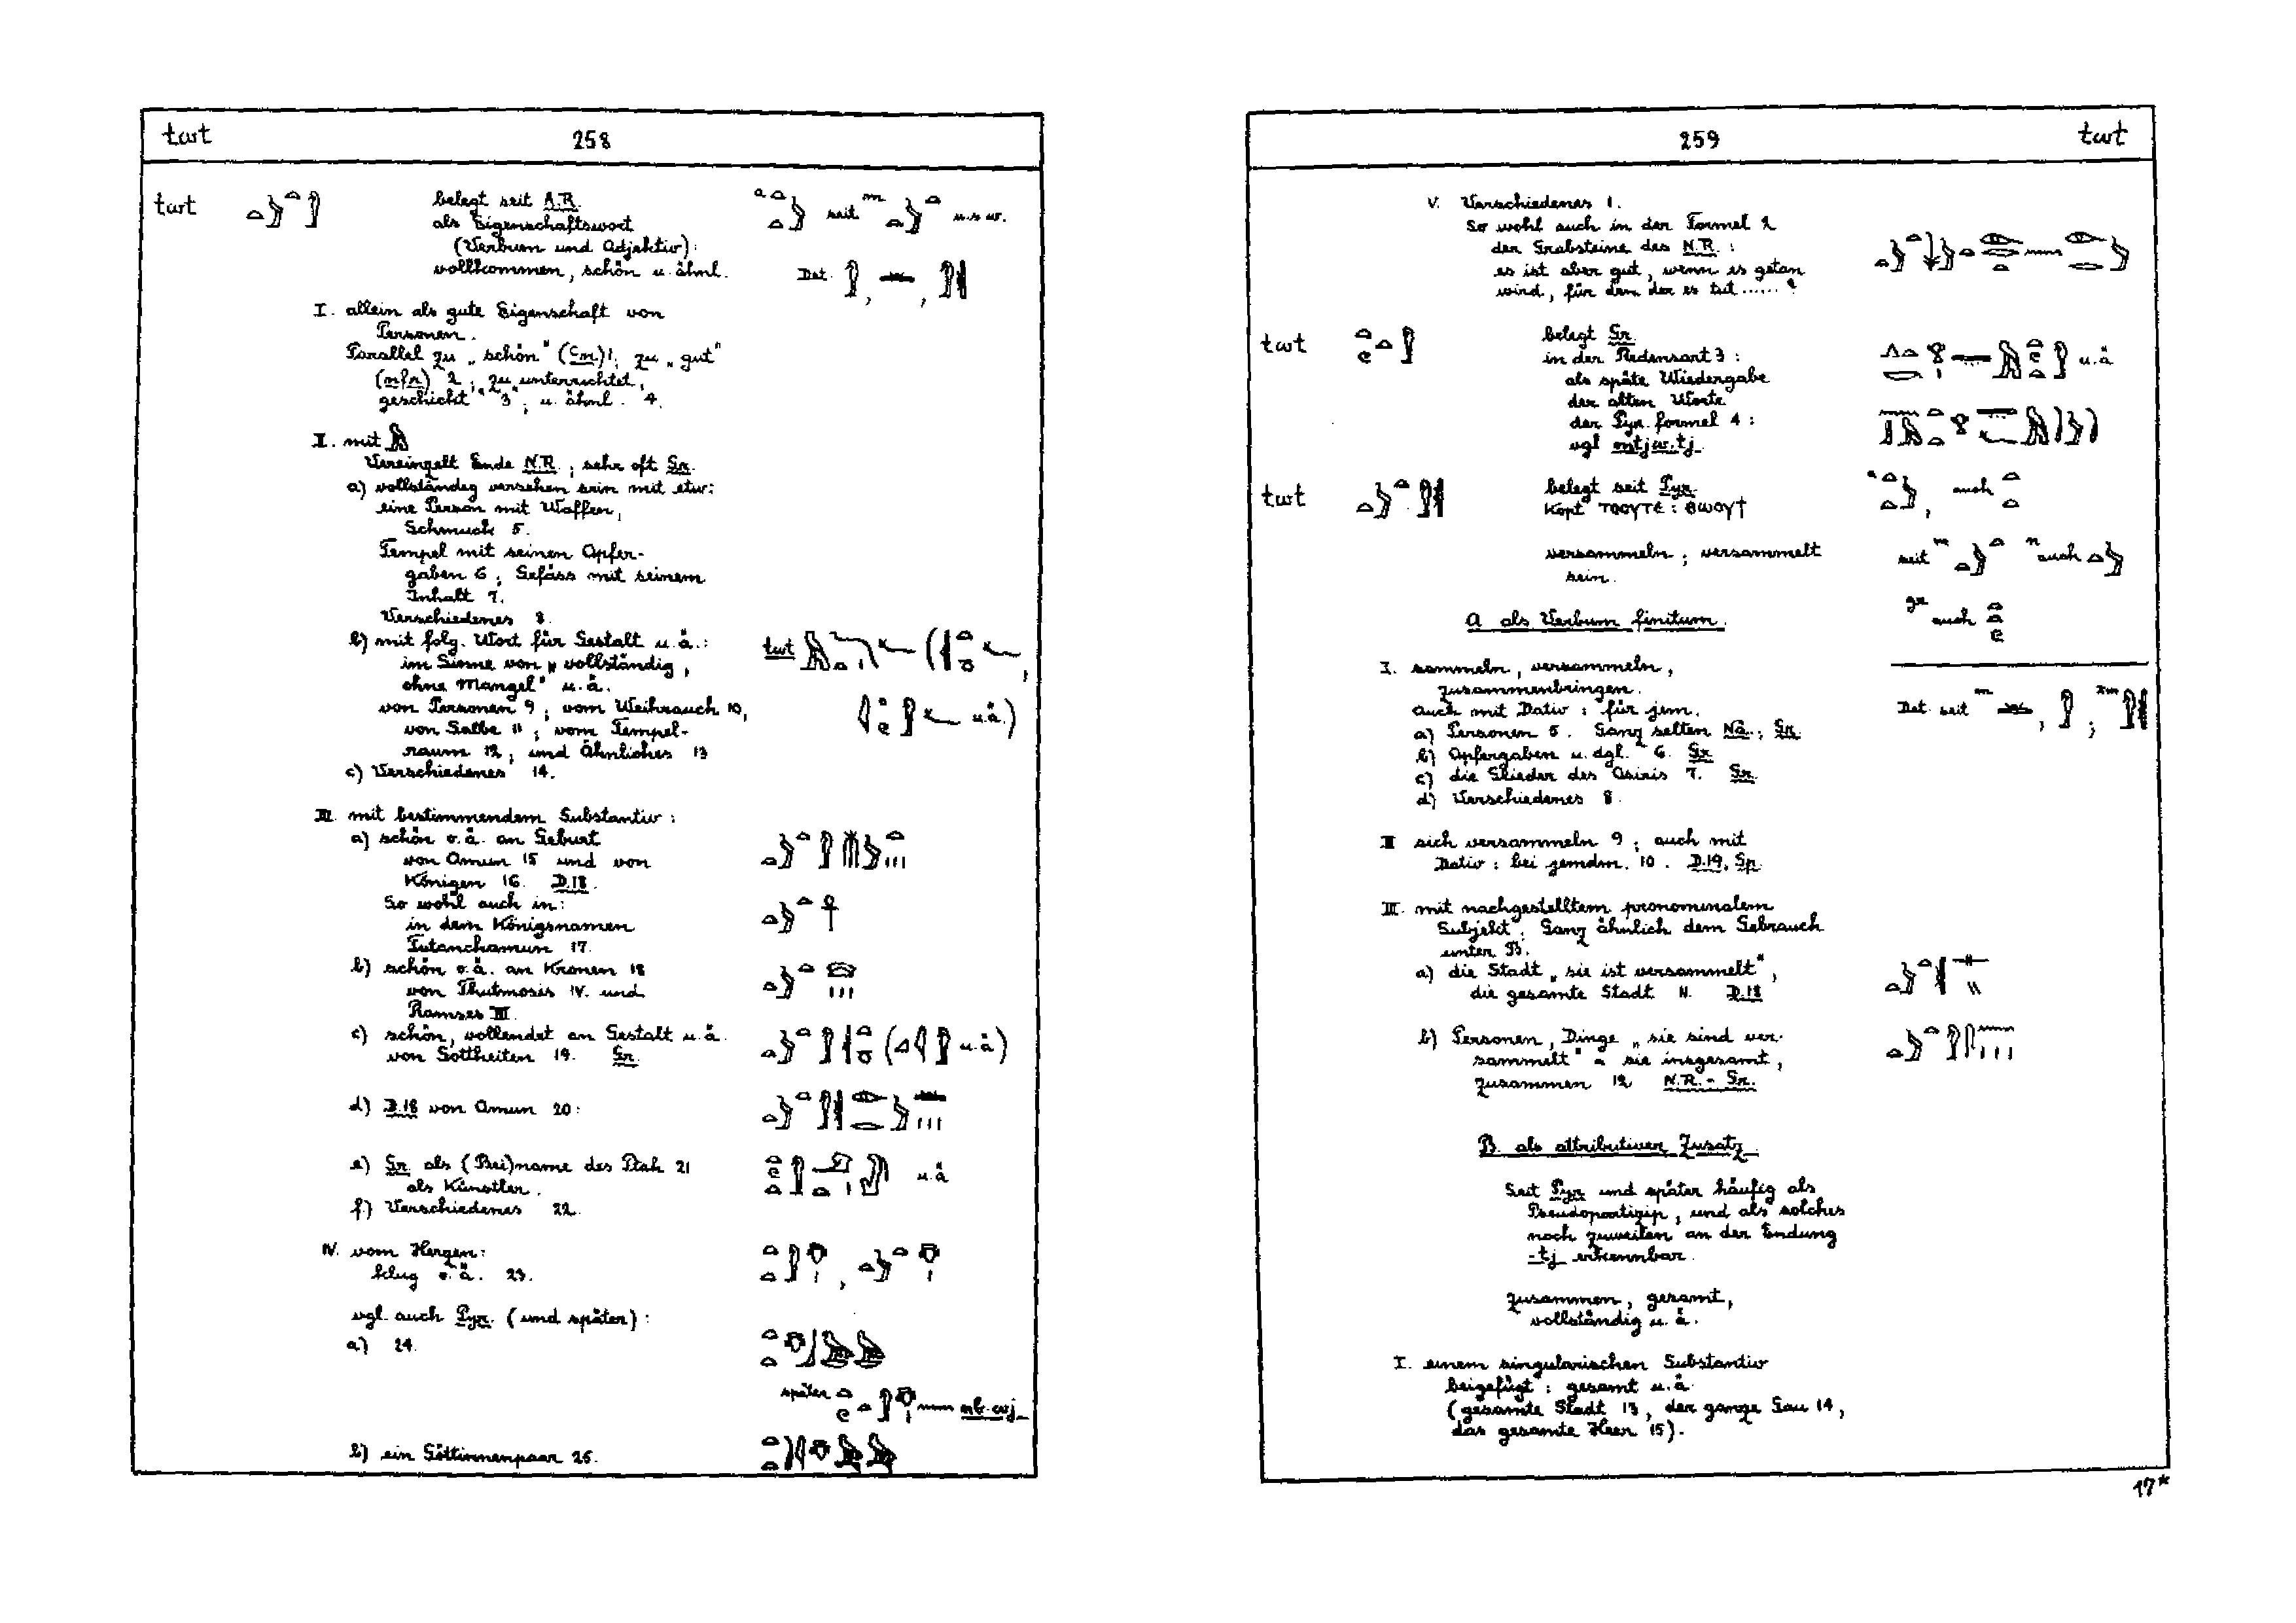 twt 258
twt
belegt seit A.R.
als Eigenschaftswort
(Verbum und Adjektiv):
vollkommen, schön u. ähnl.
a seit m u.s.w.
Det. , ,
I. allein als gute Eigenschaft von
Personen.
Parallel zu „schön" (ꜥn) 1; zu „gut"
(nfr) 2; zu „unterrichtet,
geschickt" 3; u. ähnl. 4.
II. mit
Vereinzelt Ende N.R.; sehr oft Gr.
a) vollständig versehen sein mit etw:
eine Person mit Waffen,
Schmuck 5.
Tempel mit seinen Opfer-
gaben 6; Gefäss mit seinem
Inhalt 7.
Verschiedenes 8.
b) mit folg. Wort für Gestalt u.ä.:
im Sinne von „vollständig,
ohne Mangel" u.ä.
twt ( ,
von Personen 9; vom Weihrauch 10,
u.ä.)
von Salbe 11; vom Tempel-
raum 12; und Ähnliches 13
c) Verschiedenes 14.
III. mit bestimmendem Substantiv:
a) schön o.ä. an Geburt
von Amun 15 und von
Königen 16. D.18.
So wohl auch in:
in dem Königsnamen
Tutanchamun 17.
b) schön o.ä. an Kronen 18
von Thutmosis IV. und
Ramses III.
c) schön, vollendet an Gestalt u.ä.
von Gottheiten 19. Gr.
( u.ä)
d) D.18 von Amun 20:
e) Gr. als (Bei)name des Ptah 21
als Künstler.
u.ä
f) Verschiedenes 22.
IV. vom Herzen:
klug o.ä. 23.
vgl. auch Pyr. (und später):
a) 24.
später nb-wj
b) ein Göttinnenpaar 25.
259 twt
V. Verschiedenes 1.
So wohl auch in der Formel 2
der Grabsteine des N.R.:
es ist aber gut, wenn es getan
wird, für den der es tut ......
twt
belegt Gr.
in der Redensart 3:
u.ä
als späte Wiedergabe
der alten Worte
der Pyr. formel 4:
vgl mtjw.tj
twt
belegt seit Pyr.
Kopt ⲧⲟⲟⲩⲧⲉ: ⲑⲱⲟⲩϯ
a , auch
versammeln; versammelt
sein.
seit m n auch
gr auch
A als Verbum finitum.
I. sammeln, versammeln,
zusammenbringen.
auch mit Dativ: für jem.
Det seit m , ;
a) Personen 5. Ganz selten Nä.; Gr.
b) Opfergaben u. dgl. 6. Gr.
c) die Glieder des Osiris 7. Gr.
d) Verschiedenes 8.
II sich versammeln 9; auch mit
Dativ: bei jemdm. 10. D.19, Sp.
III. mit nachgestelltem pronominalem
Subjekt; Ganz ähnlich dem Gebrauch
unter B.
a) die Stadt „sie ist versammelt",
die gesamte Stadt 11. D.18
b) Personen, Dinge „sie sind ver-
sammelt" = sie insgesamt,
zusammen 12 N.R. - Gr.
B. als attributiver Zusatz.
Seit Pyr und später häufig als
Pseudopartizip, und als solches
noch zuweilen an der Endung
-tj erkennbar.
zusammen, gesamt,
vollständig u. ä.
I. einem singularischen Substantiv
beigefügt: gesamt u.ä.
(gesamte Stadt 13, der ganze Gau 14,
das gesamte Heer 15).
17*